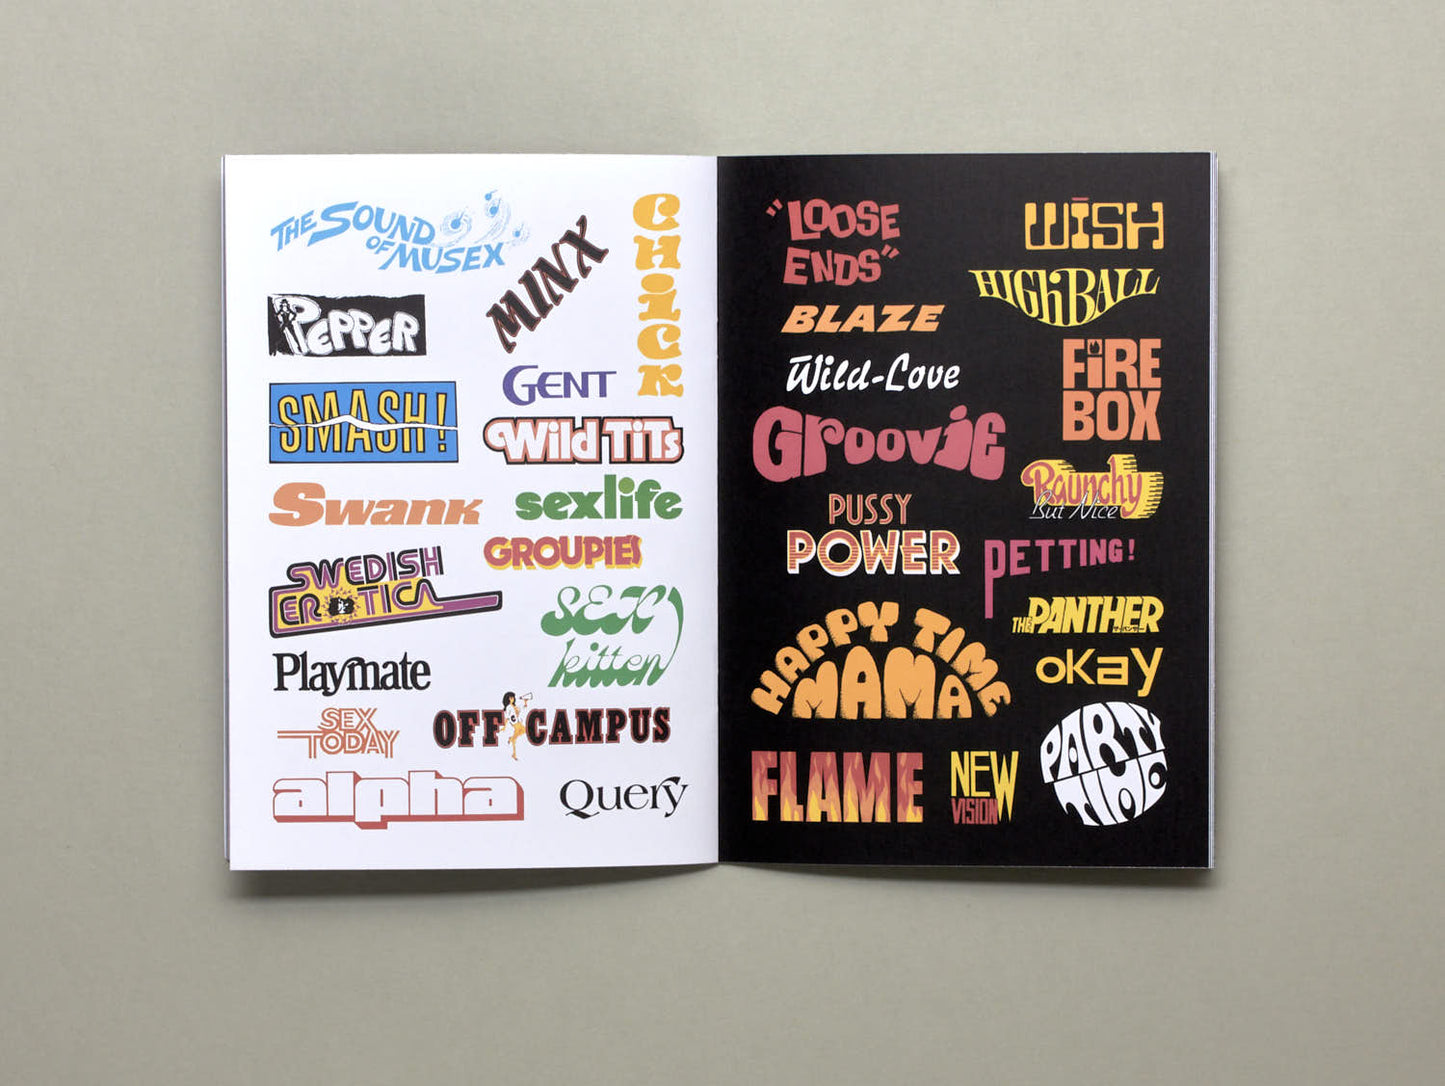 THE SOUND
OF MUSEX
MINX
CHiCK
PEPPER
GENT
SMASH!
Wild TiTs
Swank
sexlife
GROUPIES
SWEDISH
EROTICA
SEX
kitten
Playmate
SEX
TODAY
OFF CAMPUS
alpha
Query
"LOOSE
ENDS"
WISH
HIGhBALL
BLAZE
Wild-Love
FiRE
BOX
Groovie
Raunchy
But Nice
PUSSY
POWER
PETTING!
THE PANTHER
ザ・パンサー
HAPPY TIME
MAMA
OKay
PARTY
TIME
FLAME
NEW
VISION